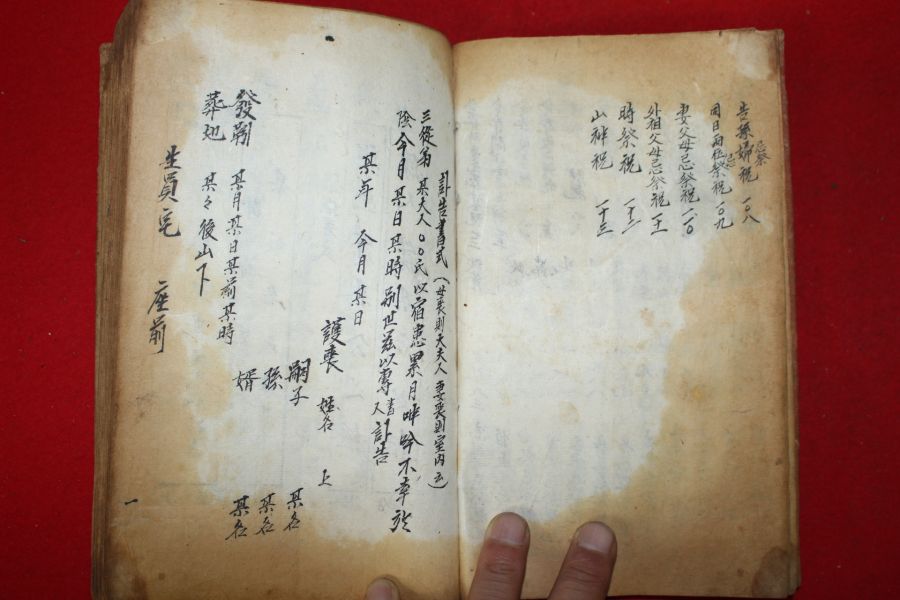 告孫婦忌祭祝 一〇八
同日兩位忌祭祝 一〇九
妻父母忌祭祝 一一〇
外祖父母忌祭祝 十一
時祭祝 十二
山神祝 十三
訃告書式(母喪則大夫人 妻喪則室内云)
三從弟 某夫人〇〇氏以宿患累月呻吟不幸於
陰今月某日某時別世玆以專人書訃告
某年 今月 某日
護喪 姓名 上
嗣子 某名
孫 某名
婿 某名
發靷 某月某日某前某時
葬地 某々後山下
生員宅 座前
一